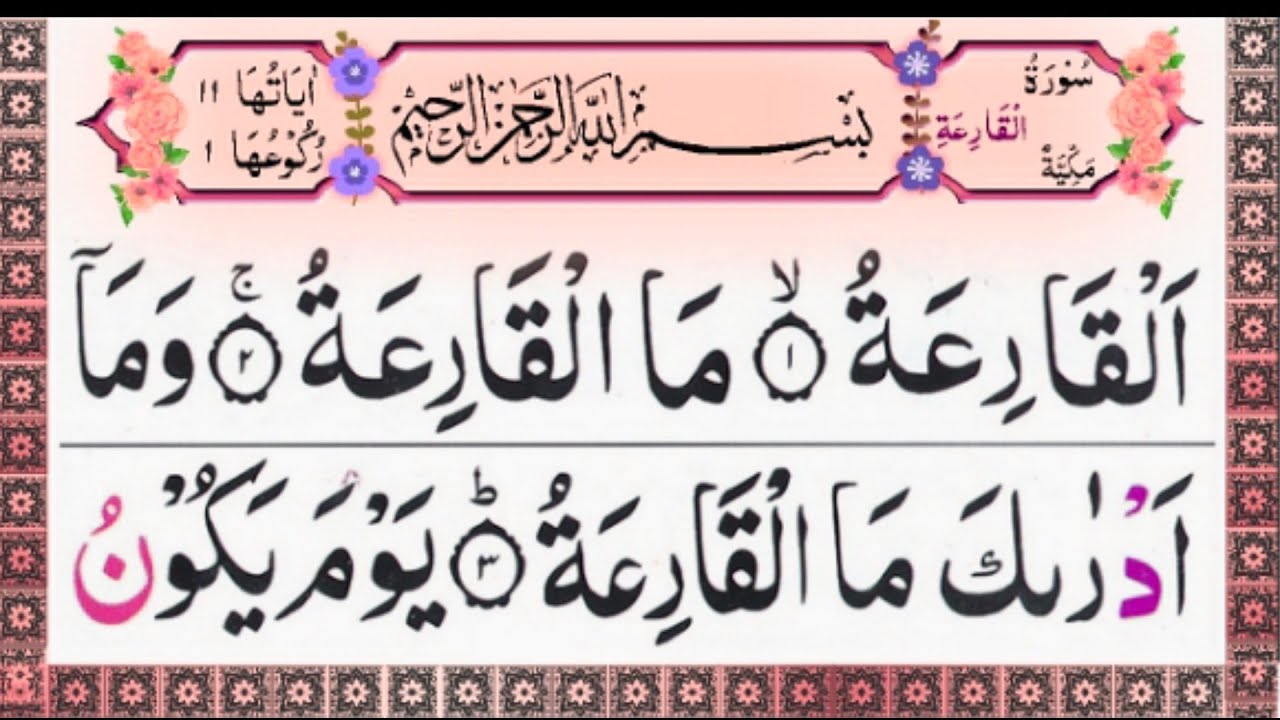 سُوْرَةُ
الْقَارِعَةِ
مَكِّيَّةٌ
بِسْمِ اللّٰهِ الرَّحْمٰنِ الرَّحِيْمِ
اٰيَاتُهَا ١١
رُكُوْعُهَا ١
اَلْقَارِعَةُ ۙ﴿١﴾ مَا الْقَارِعَةُ ۚ﴿٢﴾ وَمَآ
اَدْرٰىكَ مَا الْقَارِعَةُ ؕ﴿٣﴾ يَوْمَ يَكُوْنُ